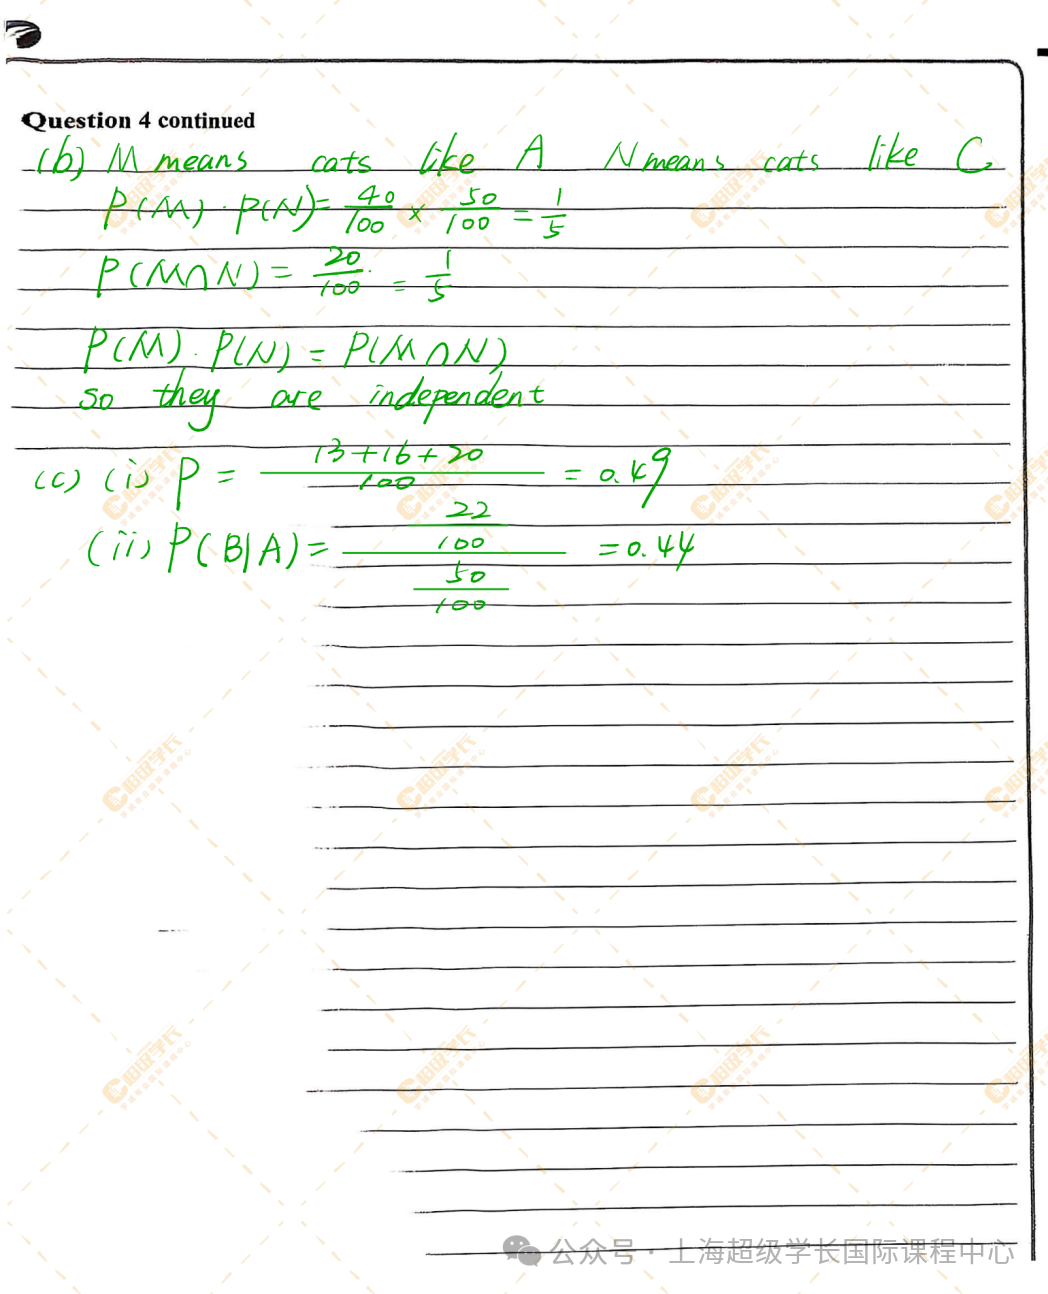 Question 4 continued
(b) M means cats like A N means cats like C
P(M) · P(N) = 40/100 × 50/100 = 1/5
P(M∩N) = 20/100 = 1/5
P(M) · P(N) = P(M∩N)
so they are independent
(c) (i) P = 13+16+20/100 = 0.49
(ii) P(B|A) = 22/100 / 50/100 = 0.44
公众号 · 上海超级学长国际课程中心